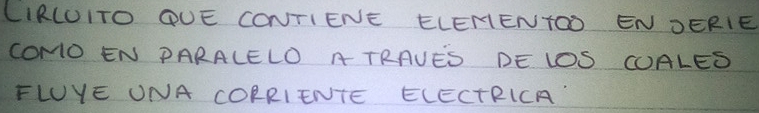 CIRCUITO QUE CONTIENE ELEMENTOS EN SERIE
COMO EN PARALELO A TRAVÉS DE LOS CUALES
FLUYE UNA CORRIENTE ELECTRICA